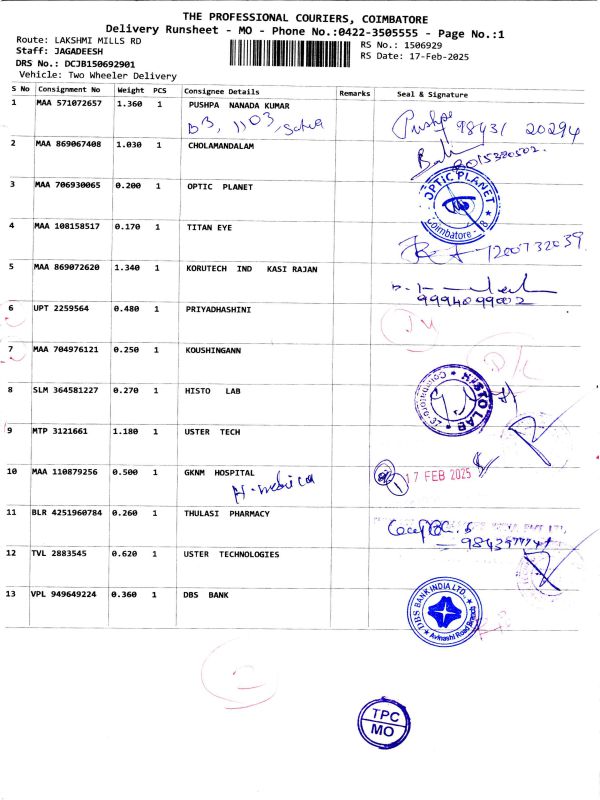 THE PROFESSIONAL COURIERS, COIMBATORE
Delivery Runsheet - MO - Phone No.:0422-3505555 - Page No.:1
Route: LAKSHMI MILLS RD
RS No.: 1506929
Staff: JAGADEESH
RS Date: 17-Feb-2025
DRS No.: DCJB150692901
Vehicle: Two Wheeler Delivery
S No Consignment No Weight PCS Consignee Details Remarks Seal & Signature
1 MAA 571072657 1.360 1 PUSHPA NANADA KUMAR
B3, 1103,
Pushpa 98431 20294
2 MAA 869067408 1.030 1 CHOLAMANDALAM
8015320502.
3 MAA 706930065 0.200 1 OPTIC PLANET
OPTIC PLANET
Coimbatore - 18
4 MAA 108158517 0.170 1 TITAN EYE
7200732039.
5 MAA 869072620 1.340 1 KORUTECH IND KASI RAJAN
9994099002
6 UPT 2259564 0.480 1 PRIYADHASINI
7 MAA 704976121 0.250 1 KOUSHINGANN
D/L
8 SLM 364581227 0.270 1 HISTO LAB
HISTO LAB
Coimbatore-37
9 MTP 3121661 1.180 1 USTER TECH
10 MAA 110879256 0.500 1 GKNM HOSPITAL
17 FEB 2025
11 BLR 4251960784 0.260 1 THULASI PHARMACY
12 TVL 2883545 0.620 1 USTER TECHNOLOGIES
13 VPL 949649224 0.360 1 DBS BANK
DBS BANK INDIA LTD.,
Avinashi Road Branch
TPC
MO